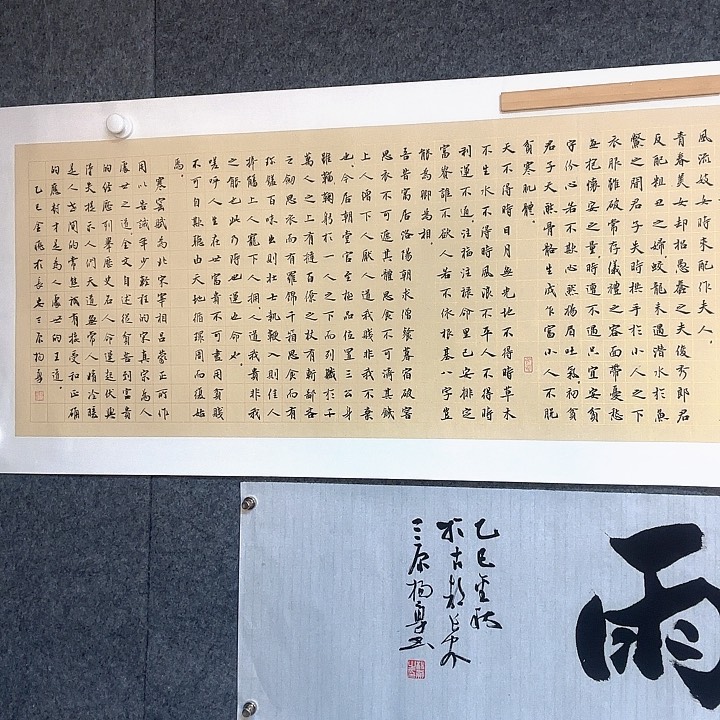 風流妓女時來配作夫人。
青春美女却招愚蠢之夫俊秀郎君
反配粗丑之婦。蛟龍未遇潜水於魚
鱉之間君子失時拱手於小人之下
衣服雖破常存儀禮之容面帶憂愁
每抱懷安之量。時遭不遇只宜安貧
守份心若不欺必然揚眉吐氣。初貧
君子天然骨骼生成乍富小人不脱
貧寒肌體。
天不得時日月無光地不得時草木
不生水不得時風浪不平人不得時
利運不通注福注祿命里已安排定
富貴誰不欲人若不依根基八字豈
能為卿為相。
吾昔寓居洛陽朝求僧餐暮宿破窑
思衣不可遮其體思食不可濟其饑
上人憎下人厭人道我賤非我不棄
也。今居朝堂官至極品位置三公身
雖鞠躬於一人之下而列職於千
萬人之上有撻百僚之杖有斬鄙吝
之劍思衣而有羅錦千箱思食而有
珍饈百味出則壯士執鞭入則佳人
捧觴上人寵下人擁人道我貴非我
之能也此乃時也運也命也。
嗟呼人生在世富貴不可盡用貧賤
不可自欺聽由天地循環周而復始
焉。
寒窑賦為北宋宰相吕蒙正所作
用以告誡年少輕狂的宋真宗為人
處世之道全文自述從貧苦到富貴
的經歷列舉歷史名人命運起伏興
得失提示人們天道無常人情冷暖
是人世間的常態祇有接受和正確
的應對才是為人處世的王道。
乙巳金秋於長安三原楊
雨
乙巳金秋
於古都長安
三原楊